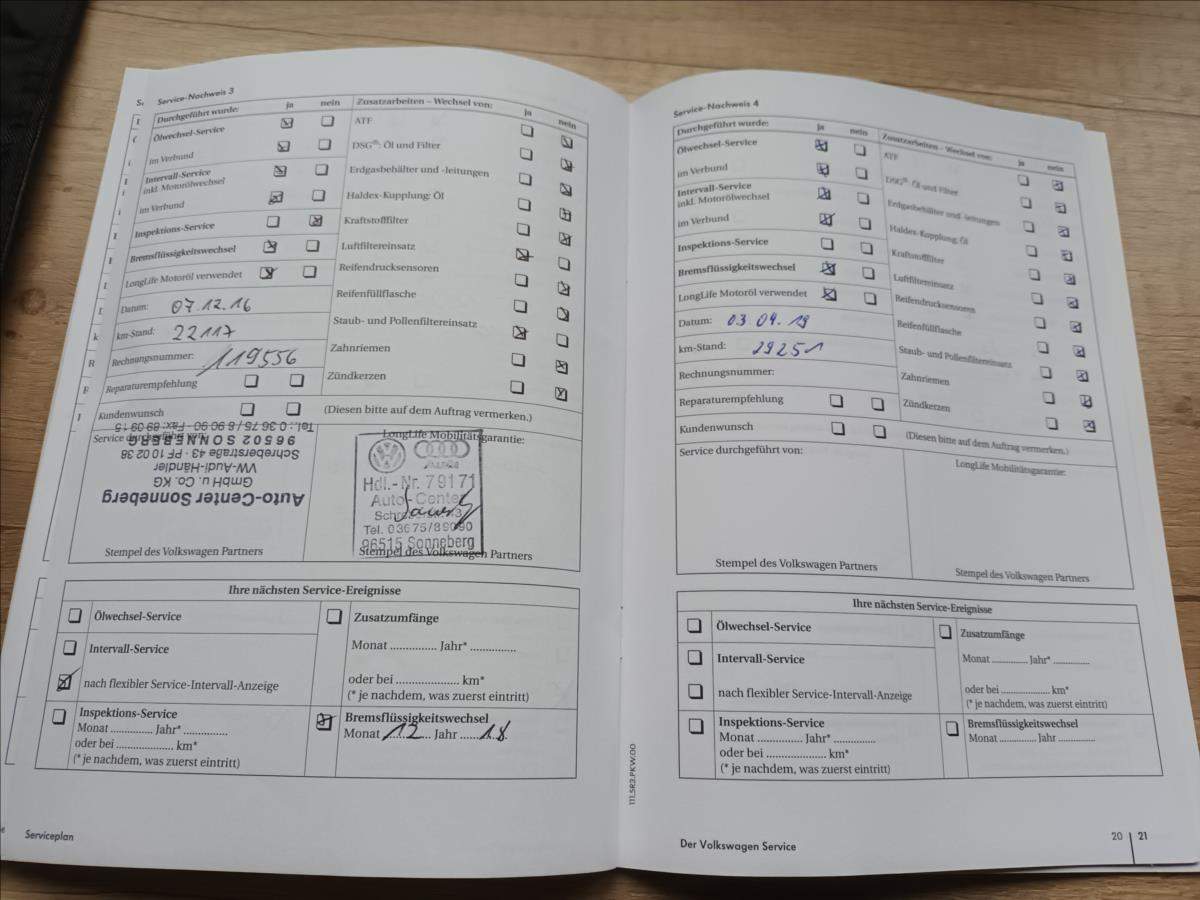 Service-Nachweis 3
Durchgeführt wurde: ja nein
Ölwechsel-Service
im Verbund
Intervall-Service
inkl. Motorölwechsel
im Verbund
Inspektions-Service
Bremsflüssigkeitswechsel
LongLife Motoröl verwendet
Datum: 07.12.16
km-Stand: 22117
Rechnungsnummer: 119556
Reparaturempfehlung
Kundenwunsch
Zusatzarbeiten – Wechsel von: ja nein
ATF
DSG®: Öl und Filter
Erdgasbehälter und -leitungen
Haldex-Kupplung: Öl
Kraftstofffilter
Luftfiltereinsatz
Reifendrucksensoren
Reifenfüllflasche
Staub- und Pollenfiltereinsatz
Zahnriemen
Zündkerzen
(Diesen bitte auf dem Auftrag vermerken.)
Service durchgeführt von:
Auto-Center Sonneberg
GmbH u. Co. KG
VW-Audi-Händler
Schreberstraße 43 · PF 10 02 38
96502 SONNEBERG
Tel.: 0 36 75 / 8 90 90 · Fax: 89 09 15
Stempel des Volkswagen Partners
LongLife Mobilitätsgarantie:
Hdl.-Nr. 79171
Auto-Center
Tel. 03675/89090
96515 Sonneberg
Stempel des Volkswagen Partners
Ihre nächsten Service-Ereignisse
Ölwechsel-Service
Intervall-Service
nach flexibler Service-Intervall-Anzeige
Inspektions-Service
Monat .............. Jahr* ..............
oder bei .................... km*
(* je nachdem, was zuerst eintritt)
Zusatzumfänge
Monat .............. Jahr* ..............
oder bei .................... km*
(* je nachdem, was zuerst eintritt)
Bremsflüssigkeitswechsel
Monat 12 Jahr 18
Serviceplan
Service-Nachweis 4
Durchgeführt wurde: ja nein
Ölwechsel-Service
im Verbund
Intervall-Service
inkl. Motorölwechsel
im Verbund
Inspektions-Service
Bremsflüssigkeitswechsel
LongLife Motoröl verwendet
Datum: 03.04.19
km-Stand: 29251
Rechnungsnummer:
Reparaturempfehlung
Kundenwunsch
Zusatzarbeiten – Wechsel von: ja nein
ATF
DSG®: Öl und Filter
Erdgasbehälter und -leitungen
Haldex-Kupplung: Öl
Kraftstofffilter
Luftfiltereinsatz
Reifendrucksensoren
Reifenfüllflasche
Staub- und Pollenfiltereinsatz
Zahnriemen
Zündkerzen
(Diesen bitte auf dem Auftrag vermerken.)
Service durchgeführt von:
Stempel des Volkswagen Partners
LongLife Mobilitätsgarantie:
Stempel des Volkswagen Partners
Ihre nächsten Service-Ereignisse
Ölwechsel-Service
Intervall-Service
nach flexibler Service-Intervall-Anzeige
Inspektions-Service
Monat .............. Jahr* ..............
oder bei .................... km*
(* je nachdem, was zuerst eintritt)
Zusatzumfänge
Monat ............ Jahr* ............
oder bei .................. km*
(* je nachdem, was zuerst eintritt)
Bremsflüssigkeitswechsel
Monat ............ Jahr ............
111.5R2.PKW.00
Der Volkswagen Service
20 | 21